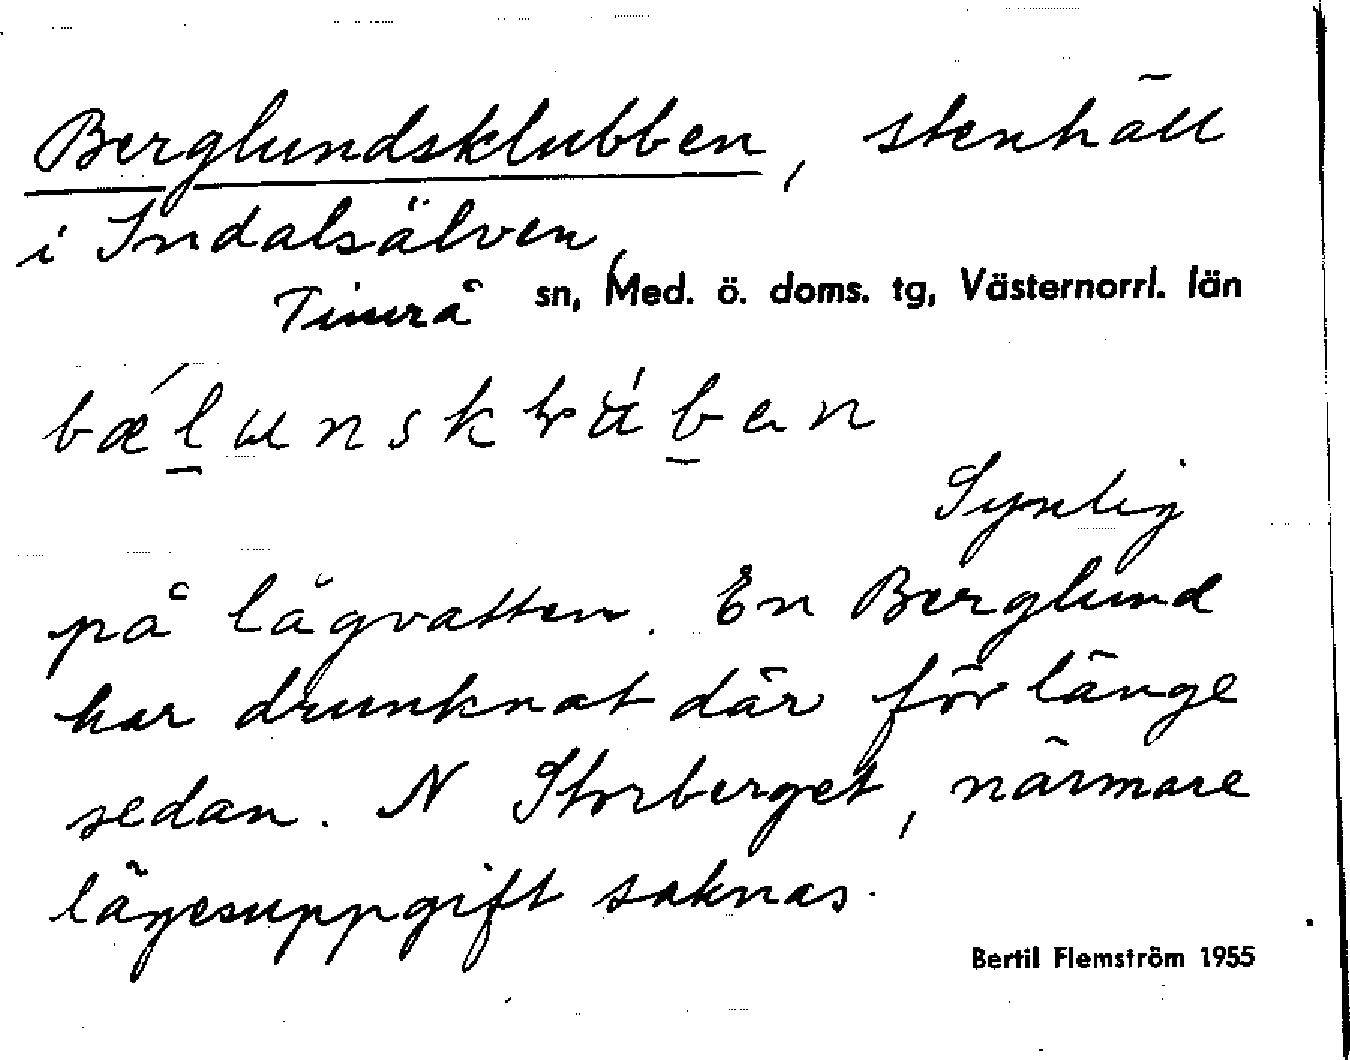 Berglundsklubben, stenhäll
i Indalsälven,
Timrå sn, Med. ö. doms. tg, Västernorrl. län
Synlig
på lågvatten. En Berglund
har drunknat där för länge
sedan. N Storberget, närmare
lägesuppgift saknas.
Bertil Flemström 1955